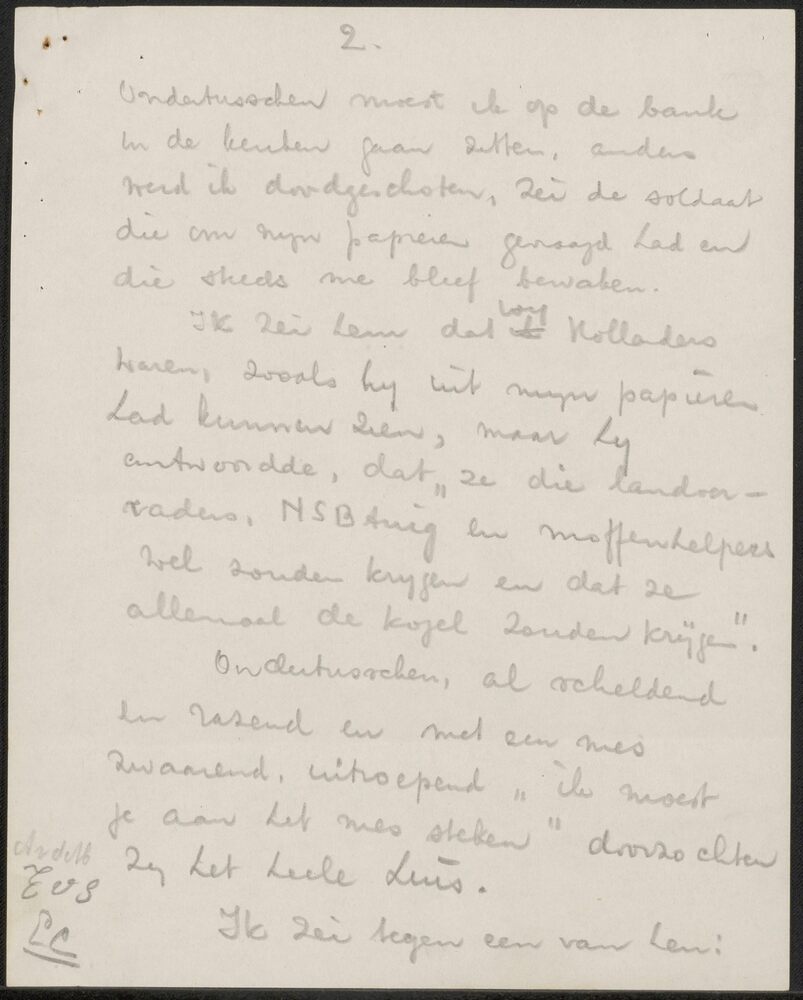 2.
Ondertusschen moest ik op de bank
in de keuken gaan zitten, anders
werd ik doodgeschoten, zei de soldaat
die om mijn papieren gevraagd had en
die steeds me bleef bewaken.
Ik zei hem dat wij Hollanders
waren, zooals hij uit mijn papieren
had kunnen zien, maar hij
antwoordde, dat „ze die landver-
raders, NSB tuig en moffenhelpers
wel zouden krijgen en dat ze
allemaal de kogel zouden krijgen".
Ondertusschen, al scheldend
en razend en met een mes
zwaaiend, uitroepend „ik moest
je aan het mes steken" doorzochten
zij het heele huis.
EVS
LC
Ik zei tegen een van hen: